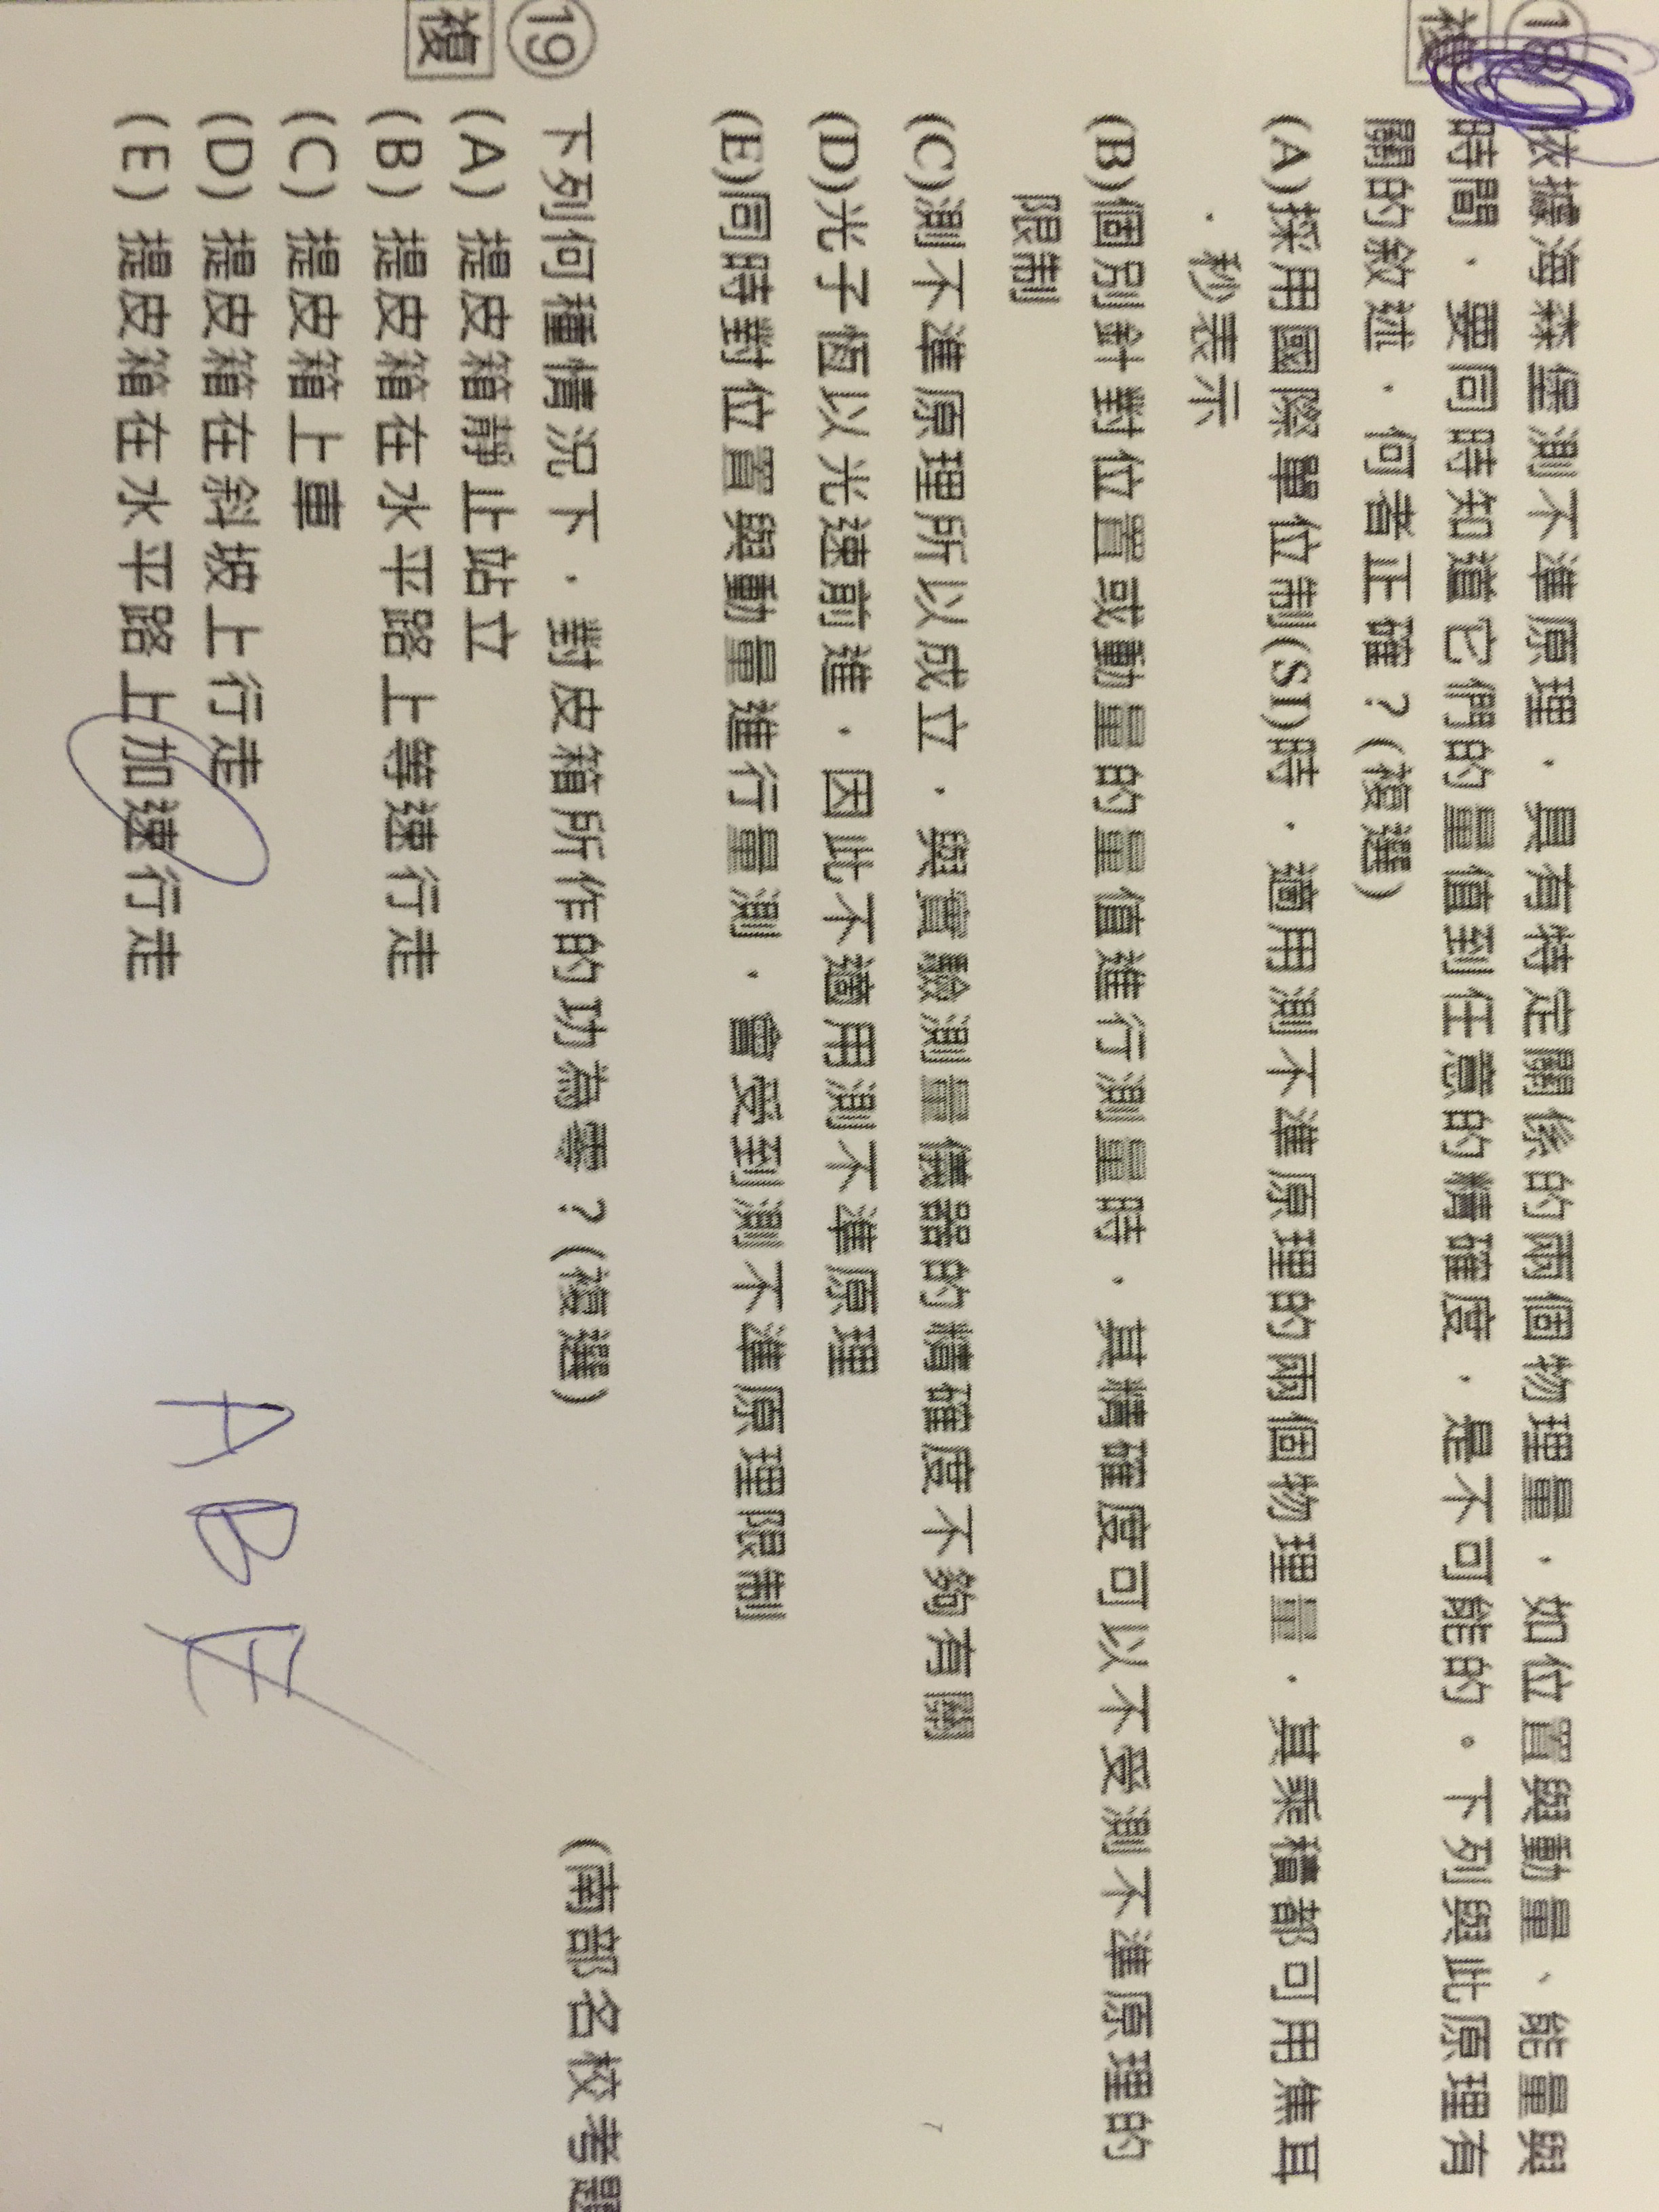 ⑱ 依據海森堡測不準原理，具有特定關係的兩個物理量，如位置與動量、能量與
複 時間，要同時知道它們的量值到任意的精確度，是不可能的。下列與此原理有
關的敘述，何者正確？(複選)
(A)採用國際單位制(SI)時，適用測不準原理的兩個物理量，其乘積都可用焦耳
．秒表示
(B)個別針對位置或動量的量值進行測量時，其精確度可以不受測不準原理的
限制
(C)測不準原理所以成立，與實驗測量儀器的精確度不夠有關
(D)光子恆以光速前進，因此不適用測不準原理
(E)同時對位置與動量進行量測，會受到測不準原理限制
⑲ 下列何種情況下，對皮箱所作的功為零？(複選) (南部名校考題
複 (A) 提皮箱靜止站立
(B) 提皮箱在水平路上等速行走
(C) 提皮箱上車
(D) 提皮箱在斜坡上行走
(E) 提皮箱在水平路上加速行走
A B E